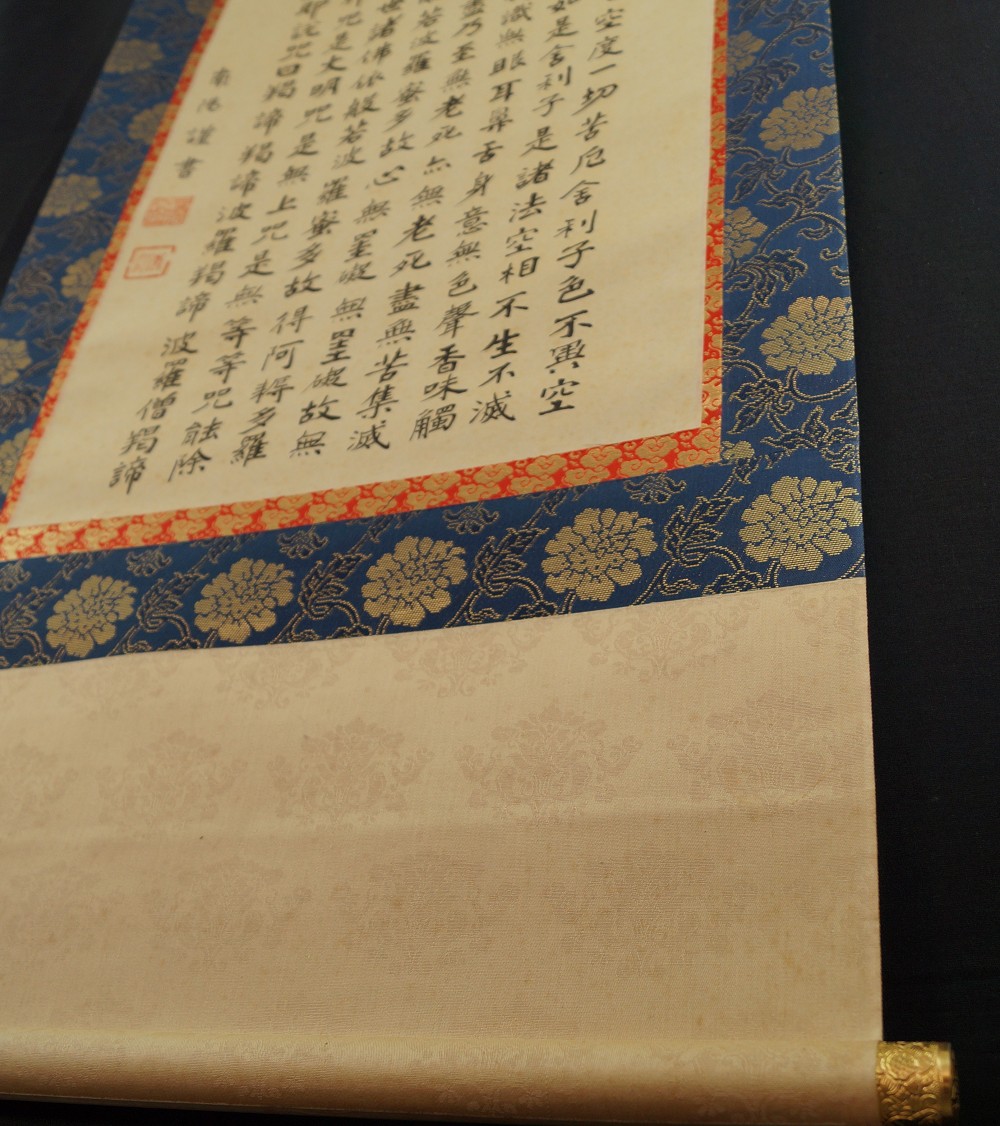 空度一切苦厄舍利子色不異空
如是舍利子是諸法空相不生不滅
識無眼耳鼻舌身意無色聲香味觸
盡乃至無老死亦無老死盡無苦集滅
若波羅蜜多故心無罣礙無罣礙故無
世諸佛依般若波羅蜜多故得阿耨多羅
咒是大明咒是無上咒是無等等咒能除
說咒曰羯諦羯諦波羅羯諦波羅僧羯諦
謹書